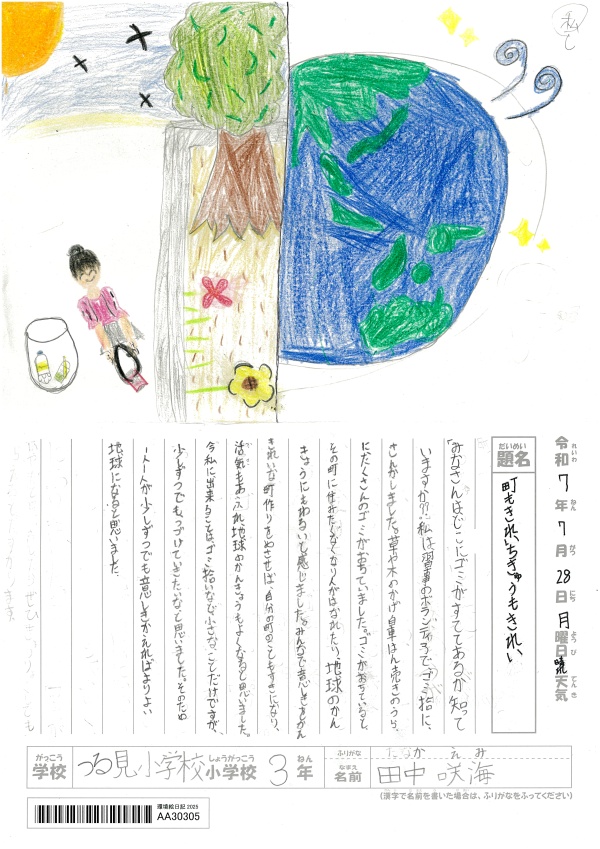 私し
令和7年7月28日月曜日晴れ天気
れいわ ねん がつ にち ようび てんき
だいめい
題名
町もきれいちきゅうもきれい
「みなさんはどこにゴミがすててあるか知って
いますか?」私は習事のボランティアでゴミ拾いに、
さんかしました。草や木のかげ、自車はん売きのうら、
にたくさんのゴミがおちていました。ゴミがおちていると、
その町に住みたくなくなり人がはなれたり、地球のかん
きょうにもわるいと感じました。みんなで意しきをかえ
きれいな町作りをめざせば、自分の町のこともすきになり、
活気もあふれ地球のかんきょうもよくなると思いました。
今私に出来ることは、ゴミ拾いなど小さなことだけですが、
少しずつでもつづけていきたいなと思いました。そのため
一人一人が少しずつでも意しきかえればよりよい
地球になると思いました。
がっこう
学校
つる見小学校
しょうがっこう
小学校
3
ねん
年
ふりがな
たなか えみ
なまえ
名前
田中 咲海
(漢字で名前を書いた場合は、ふりがなをふってください)
環境絵日記 2025
AA30305